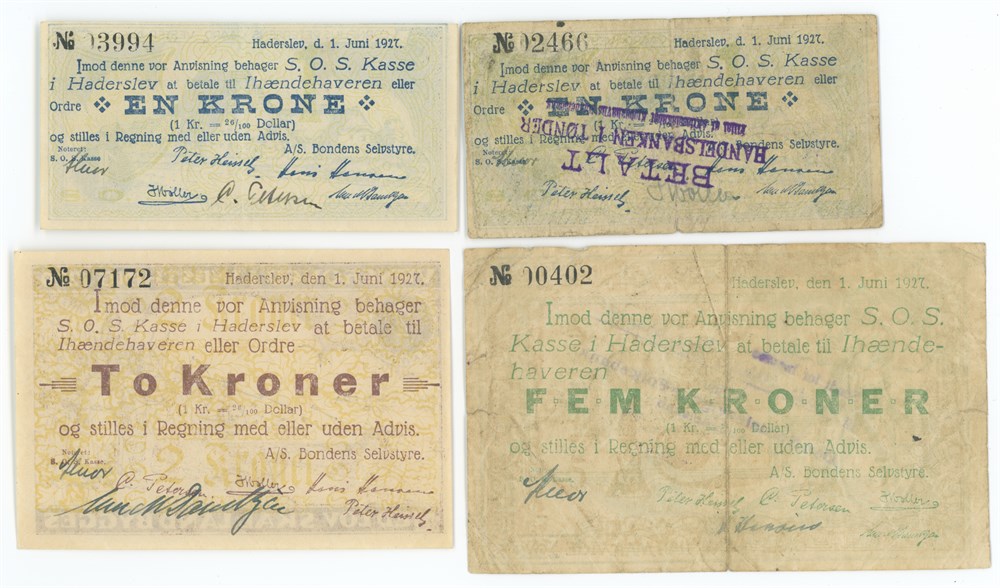 № 03994
Haderslev, d. 1. Juni 1927.
Imod denne vor Anvisning behager S. O. S. Kasse
i Haderslev at betale til Ihændehaveren eller
Ordre EN KRONE
(1 Kr. = 26/100 Dollar)
og stilles i Regning med eller uden Advis.
Noteret:
S. O. S. Kasse
A/S. Bondens Selvstyre.
Peter Heinsel
Hans Hansen
C. Petersen
№ 02466
Haderslev, d. 1. Juni 1927.
Imod denne vor Anvisning behager S. O. S. Kasse
i Haderslev at betale til Ihændehaveren eller
Ordre EN KRONE
(1 Kr. = Dollar)
og stilles i Regning med eller uden Advis.
Noteret:
S. O. S. Kasse
Bondens Selvstyre.
BETALT
HANDELSBANKEN I TØNDER
Peter Heinsel
№ 07172
Haderslev, den 1. Juni 1927.
Imod denne vor Anvisning behager
S. O. S. Kasse i Haderslev at betale til
Ihændehaveren eller Ordre
To Kroner
(1 Kr. = 26/100 Dollar)
og stilles i Regning med eller uden Advis.
Noteret:
S. O. S. Kasse.
A/S. Bondens Selvstyre.
C. Petersen
Hans Hansen
Peter Heinsel
№ 00402
Haderslev, den 1. Juni 1927.
Imod denne vor Anvisning behager S. O. S.
Kasse i Haderslev at betale til Ihænde-
haveren
FEM KRONER
(1 Kr. = /100 Dollar)
og stilles i Regning med eller uden Advis.
A/S. Bondens Selvstyre.
Peter Heinsel
C. Petersen